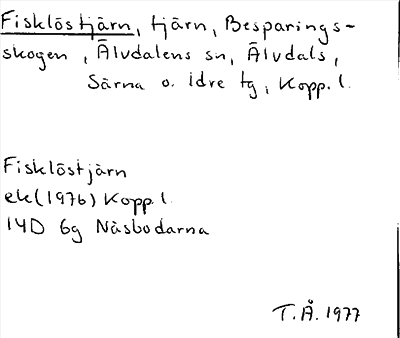 Fisklöstjärn, tjärn, Besparings-
skogen, Älvdalens sn, Älvdals,
Särna o. Idre tg, Kopp. l.
Fisklöstjärn
ek(1976) Kopp. l.
14D 6g Näsbodarna
T.Å. 1977